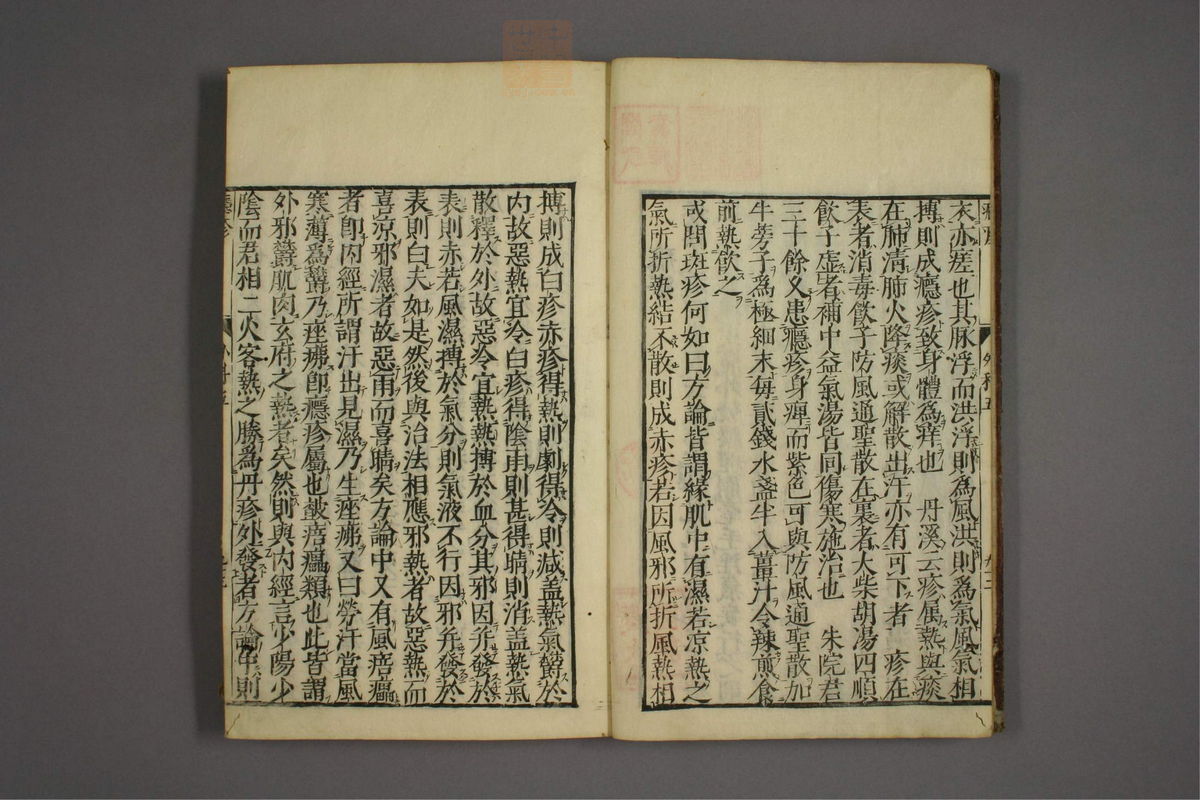 次亦瘥也其脉浮而洪浮則為風洪則為氣風氣相
搏則成癮疹致身體為痒也　丹溪云疹属熱與痰
在肺清肺火降痰或解散出汗亦有可下者　疹在
表者消毒飲子防風通聖散在裏者大柴胡湯四順
飲子虛者補中益氣湯皆同傷寒施治也　朱院君
三十餘又患癮疹身痺而紫色可與防風通聖散加
牛蒡子為極細末每貳錢水盞半入薑汁令辣煎食
前熱飲之
或問斑疹何如曰方論皆謂緣肌中有濕若凉熱之
氣所折熱結不散則成赤疹若因風邪所折風熱相
搏則成白疹赤疹得熱則劇得冷則減盖熱氣鬱於
内故惡熱宜冷白疹得陰雨則甚得晴則消盖熱氣
散釋於外故惡冷宜熱熱搏於血分其邪因并發於
表則赤若風濕搏於氣分則氣液不行因邪并發於
表則白夫如是然後與治法相應邪熱者故惡熱而
喜凉邪濕者故惡雨而喜晴矣方論中又有風㾦㿈
者卽内經所謂汗出見濕乃生痤疿又曰勞汗當風
寒薄為皶鬱乃痤疿卽癮疹屬也皶㾦㿈類也此皆謂
外邪鬱肌肉玄府之熱者矣然則與内經言少陽少
陰而君相二火客熱之勝為丹疹外發者方論中則
癮疹
外科五